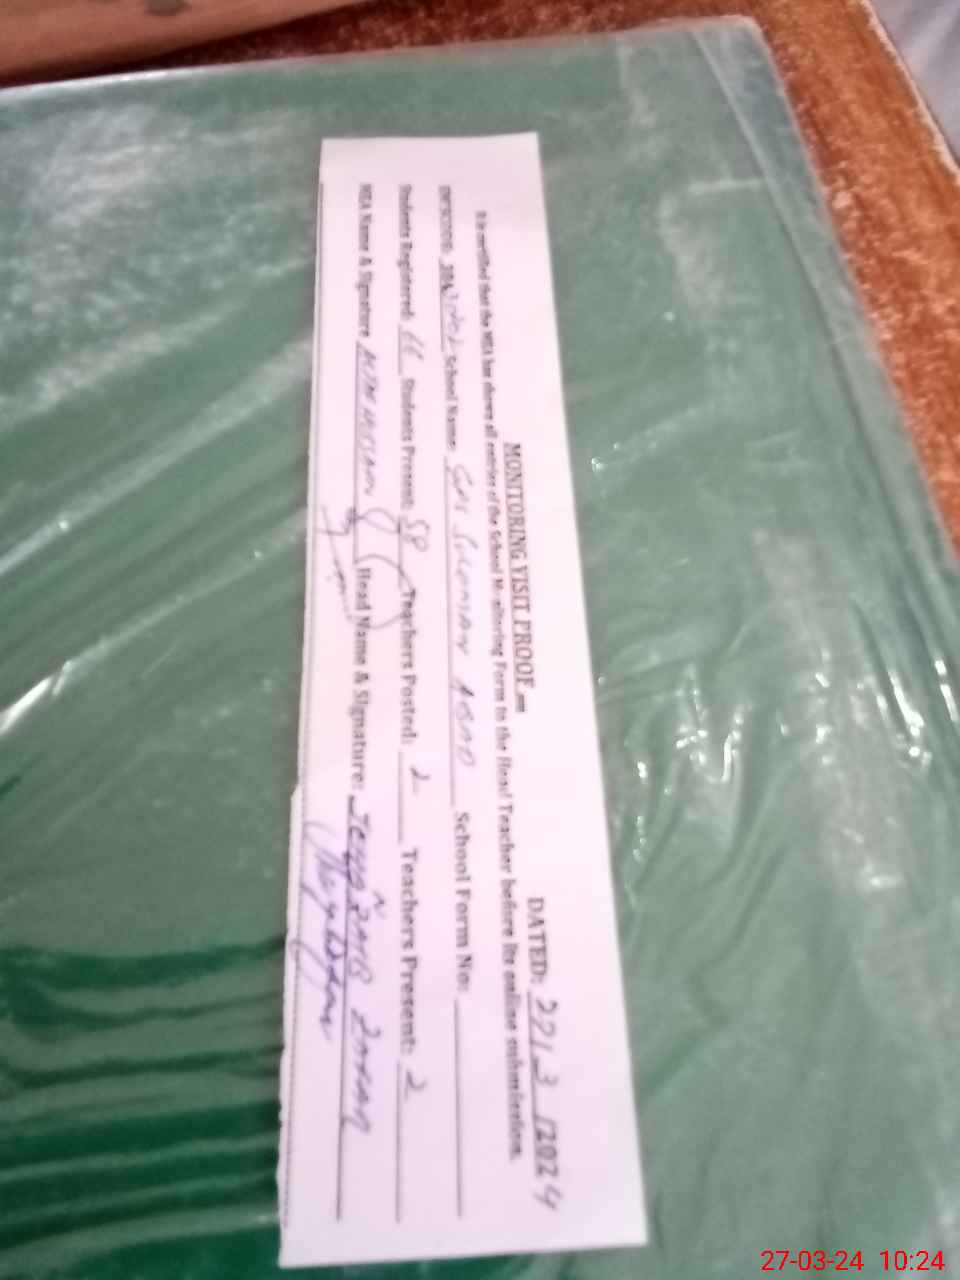 MONITORING VISIT PROOF
DATED: 27/3/2024
It is certified that the MEA has shown all entries of the School Monitoring Form to the Head Teacher before its online submission.
School Name: GPS Suleman ABAD School Form No:
Students Registered: 66 Students Present: 58 Teachers Posted: 2 Teachers Present: 2
MEA Name & Signature Head Name & Signature:
27-03-24 10:24